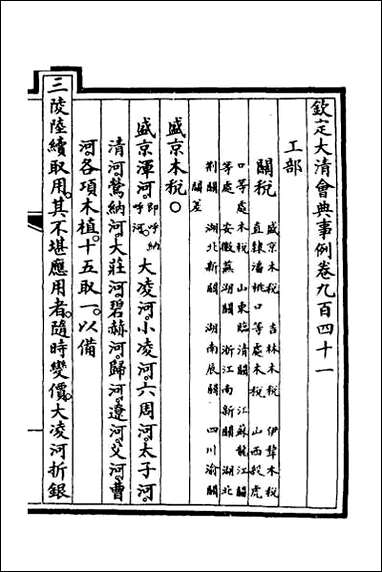 欽定大清會典事例卷九百四十一
工部
關稅 盛京木稅 吉林木稅 伊犂木稅
直隸潘桃口等處木稅 山西殺虎
口等處木稅 山東臨清關 江蘇龍江關
等處 安徽蕪湖關 浙江南新關 湖北
荆關 湖北新關 湖南辰關 四川渝關
關差
盛京木稅○
盛京渾河即呼納呼河。大凌河。小凌河。六周河。太子河。
清河。鶯納河。大莊河。碧赫河。歸河。遼河。艾河。曹
河。各項木植。十五取一。以備
三陵陸續取用。其不堪應用者。隨時變價。大凌河折銀